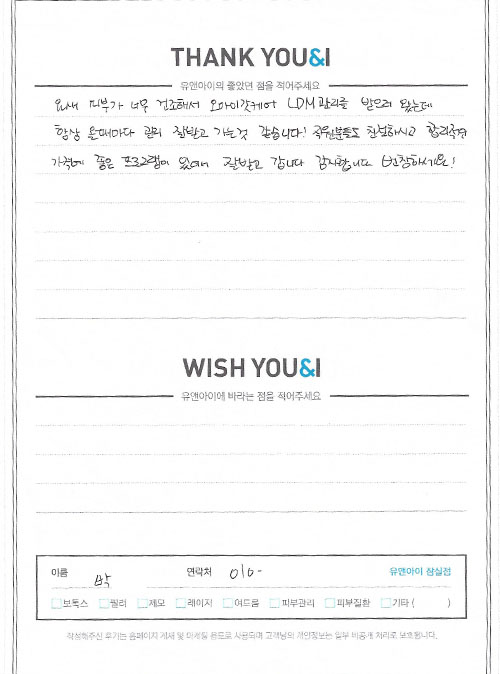 THANK YOU&I
유앤아이의 좋았던 점을 적어주세요
요새 피부가 너무 건조해서 오아이갓케어 LDM관리를 받으러 왔는데
항상 올때마다 관리 잘받고 가는것 같습니다! 직원분들도 친절하시고 합리적인
가격에 좋은 프로그램이 있어서 잘받고 갑니다 감사합니다 번창하세요!
WISH YOU&I
유앤아이에 바라는 점을 적어주세요
이름 박 연락처 010- 유앤아이 잠실점
보톡스 필러 제모 레이저 여드름 피부관리 피부질환 기타 ( )
작성해주신 후기는 홈페이지 게재 및 마케팅 용도로 사용되며 고객님의 개인정보는 일부 비공개 처리로 보호됩니다.